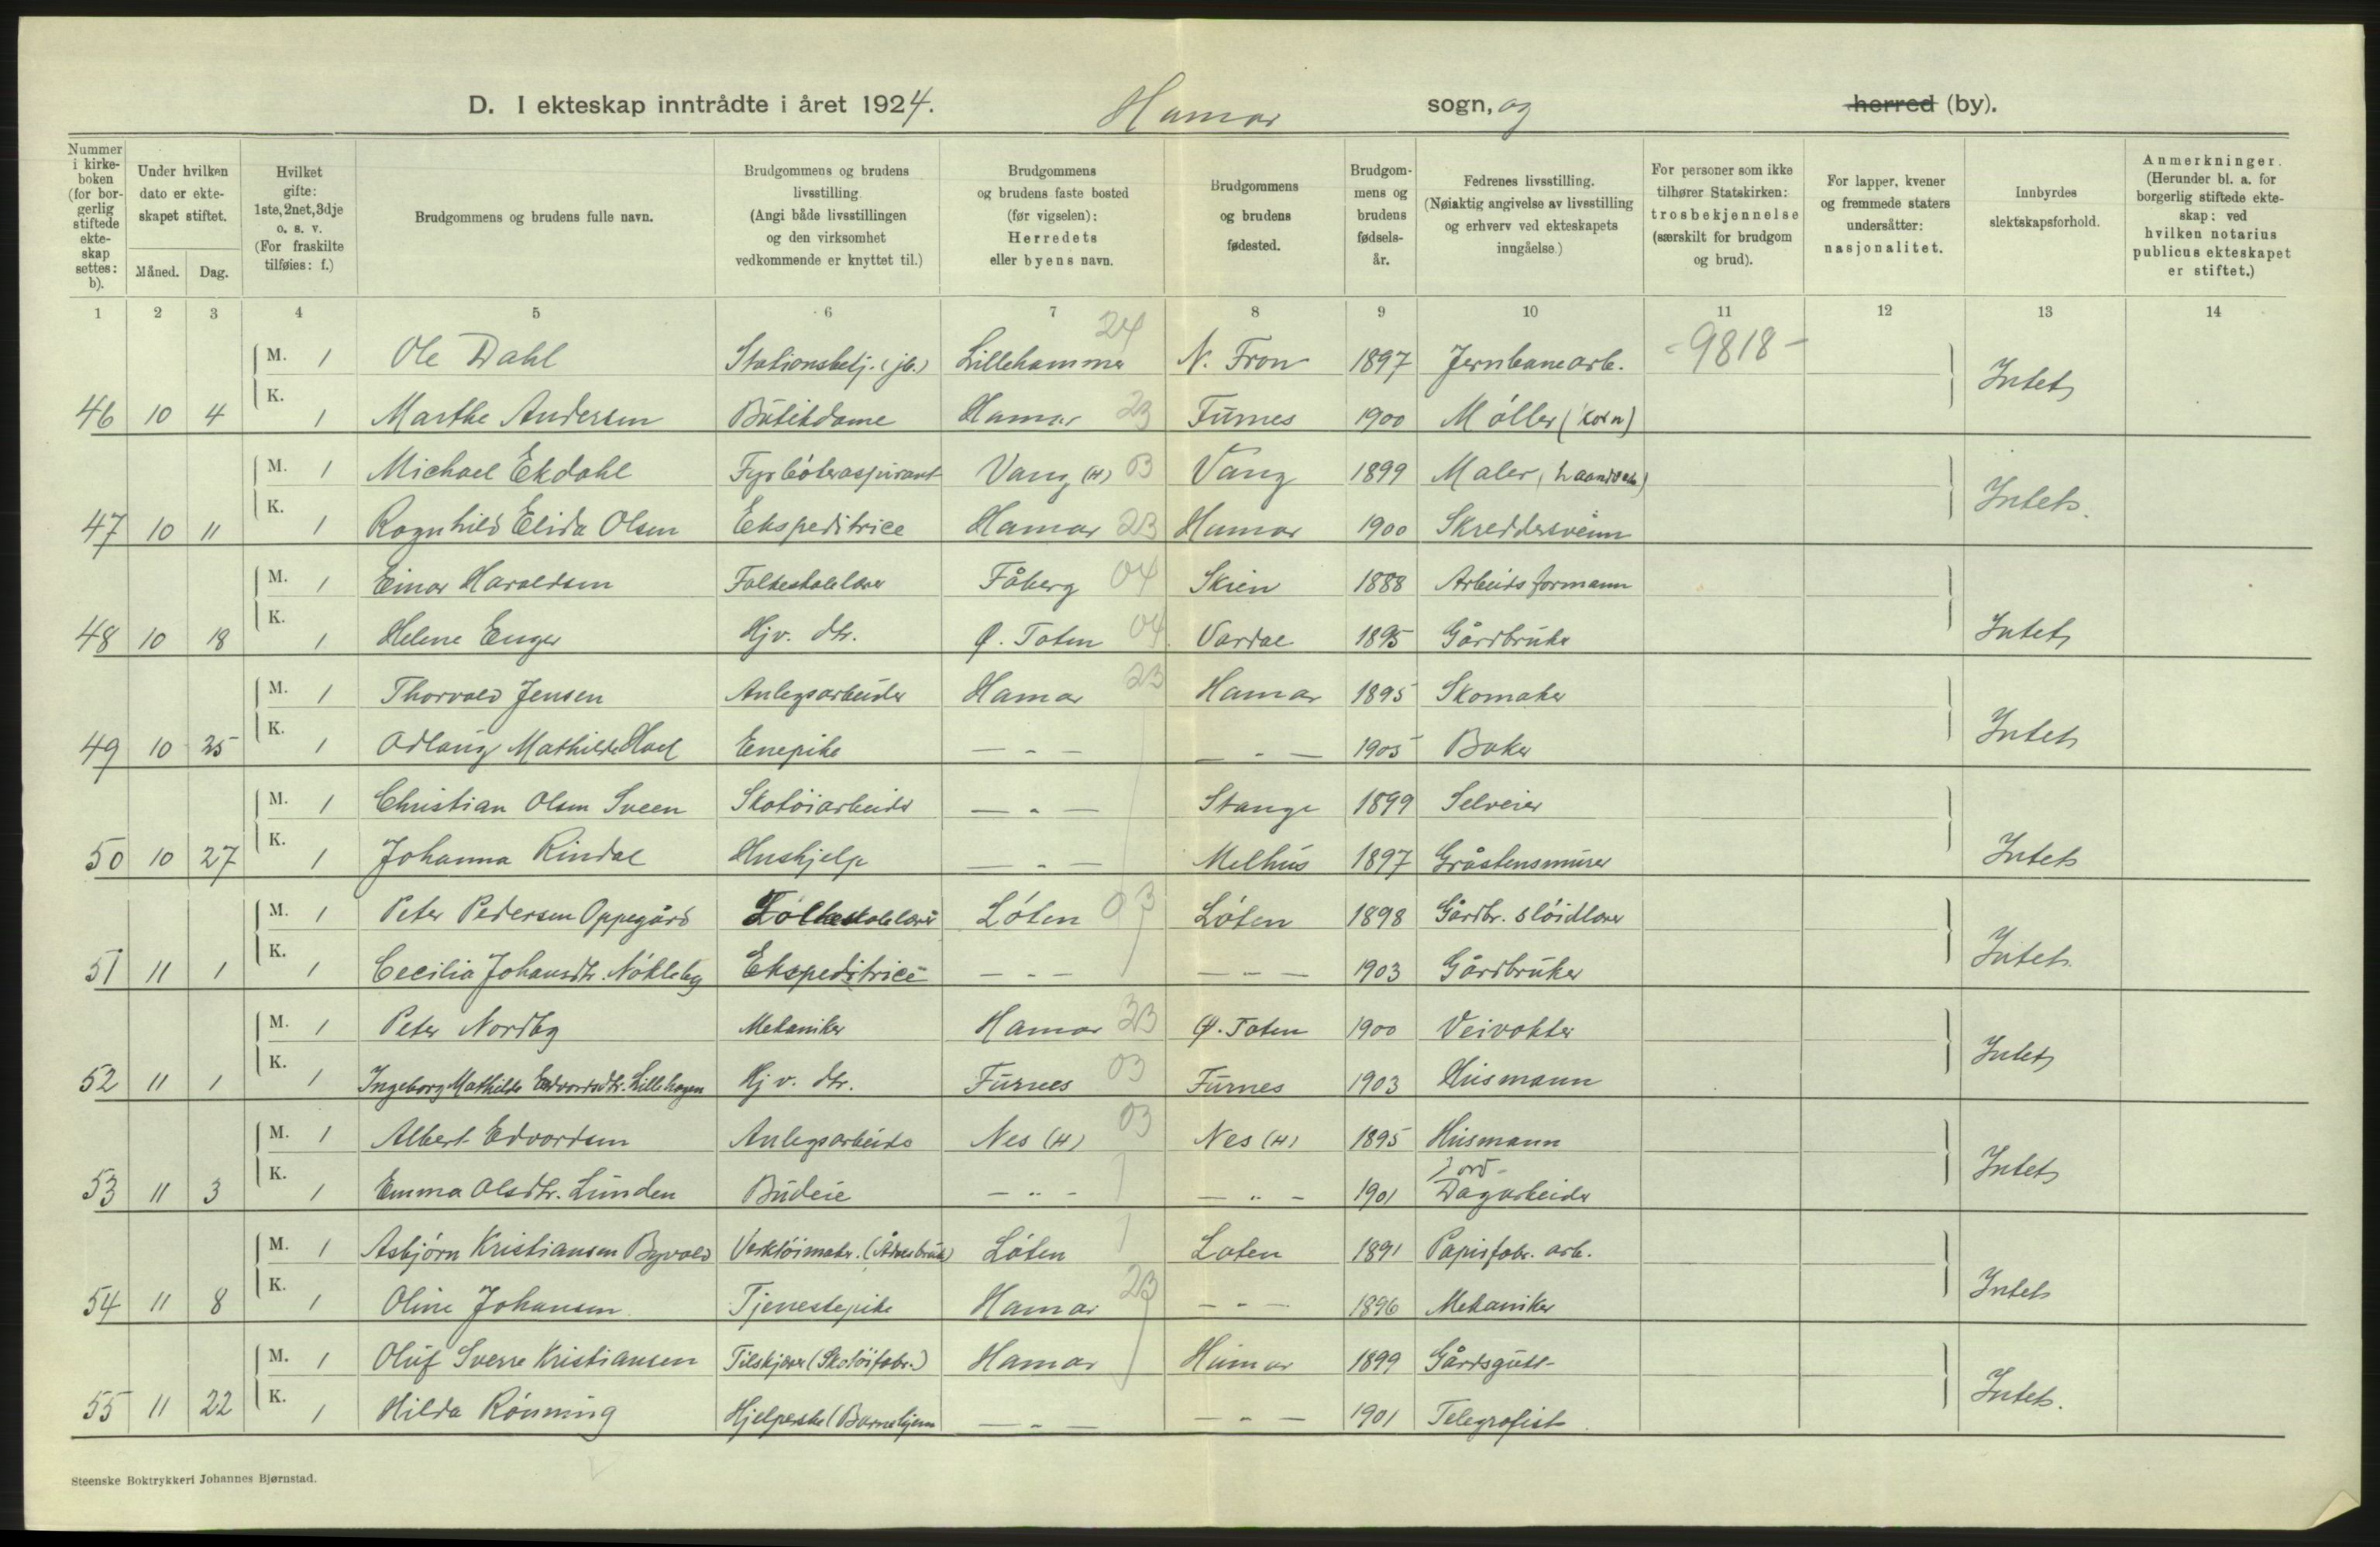 D. I ekteskap inntrådte i året 1924. Hamar sogn, og herred (by).
Nummer i kirke-boken (for bor-gerlig stiftede ekte-skap settes: b).
Under hvilken dato er ekte-skapet stiftet.
Måned. Dag.
Hvilket gifte: 1ste, 2net, 3dje o. s. v. (For fraskilte tilføies: f.)
Brudgommens og brudens fulle navn.
Brudgommens og brudens livsstilling. (Angi både livsstillingen og den virksomhet vedkommende er knyttet til.)
Brudgommens og brudens faste bosted (før vigselen): Herredets eller byens navn.
Brudgommens og brudens fødested.
Brudgom-mens og brudens fødsels-år.
Fedrenes livsstilling. (Nøiaktig angivelse av livsstilling og erhverv ved ekteskapets inngåelse.)
For personer som ikke tilhører Statskirken: trosbekjennelse (særskilt for brudgom og brud).
For lapper, kvener og fremmede staters undersåtter: nasjonalitet.
Innbyrdes slektskapsforhold.
Anmerkninger. (Herunder bl. a. for borgerlig stiftede ekte-skap: ved hvilken notarius publicus ekteskapet er stiftet.)
1 2 3 4 5 6 7 8 9 10 11 12 13 14
24
M. 1 Ole Dahl Stationsbetj. (jb.) Lillehammer N. Fron 1897 Jernbanearb. -9818-
46 10 4 K. 1 Marthe Andersen Butikdame Hamar 23 Furnes 1900 Møller (korn) Intet
M. 1 Michael Ekdahl Fyrbøteraspirant Vang (H) 03 Vang 1899 Maler (haandverk)
47 10 11 K. 1 Ragnhild Elida Olsen Ekspeditrice Hamar 23 Hamar 1900 Skreddersvenn Intet.
M. 1 Einar Haraldsen Folkeskolelærer Fåberg 04 Skien 1888 Arbeidsformann
48 10 18 K. 1 Helene Enger Hjv. dtr. Ø. Toten 04 Vardal 1895 Gårdbruker Intet
M. 1 Thorvald Jensen Anlegsarbeider Hamar 23 Hamar 1895 Skomaker
49 10 25 K. 1 Odlaug Mathilde Hoel Enepike — " — — " — 1905 Baker Intet
M. 1 Christian Olsen Sveen Skotøiarbeider — " — Stange 1899 Selveier
50 10 27 K. 1 Johanna Rindal Hushjelp — " — Melhus 1897 Gråstensmurer Intet
M. 1 Peter Pedersen Oppegård Folkeskolelærer Løten 03 Løten 1898 Gårdbr. sløidlærer
51 11 1 K. 1 Cecilia Johansdtr. Nøkleby Ekspeditrice — " — — " — 1903 Gårdbruker Intet.
M. 1 Peter Nordby Mekaniker Hamar 23 Ø. Toten 1900 Veivokter
52 11 1 K. 1 Ingeborg Mathilde Edvardsdtr. Lillehagen Hjv. dtr. Furnes 03 Furnes 1903 Husmann Intet
M. 1 Albert Edvardsen Anlegsarbeider Nes (H) 03 Nes (H) 1895 Husmann
53 11 3 K. 1 Emma Olsdtr. Lunden Budeie — " — — " — 1901 Jord- Dagarbeider Intet
M. 1 Asbjørn Kristiansen Byvold Verktøimaker. (Ådalsbruk) Løten Løten 1891 Papirfabr. arb.
54 11 8 K. 1 Oline Johansen Tjenestepike Hamar 23 — " — 1896 Mekaniker Intet
M. 1 Oluf Sverre Kristiansen Tilskjærer (Skotøifabr.) Hamar Hamar 1899 Gårdsgutt
55 11 22 K. 1 Hilda Rønning Hjelpeske (Barnehjem — " — — " — 1901 Telegrafist Intet.
Steenske Boktrykkeri Johannes Bjørnstad.